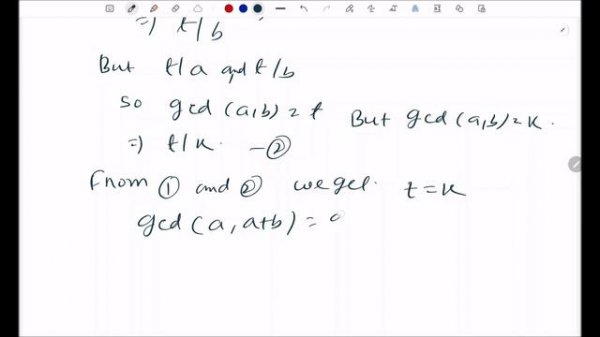 =) t/b
But t/a and t/b
so gcd (a,b) = t But gcd (a,b) = K.
=) t/K. - ②
From ① and ② we get. t = K
gcd (a, a+b) =